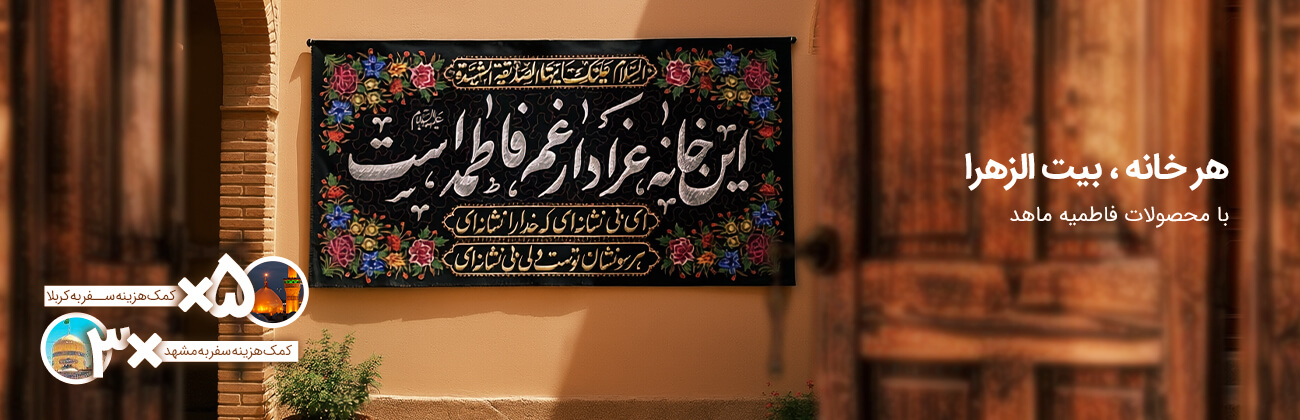 هر خانه ، بیت الزهرا
با محصولات فاطمیه ماهد
السلام علیک ایتها الصدیقة الشهیدة
این خانه عزادار غم فاطمه است
علیهاالسلام
ای بی نشانه ای که خدا را نشانه ای
هر سو نشان توست ولی بی نشانه ای
۵×
کمک هزینه سفر به کربلا
۳×
کمک هزینه سفر به مشهد